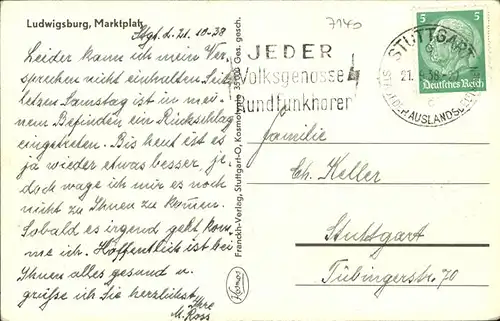 Ludwigsburg, Marktplatz
Stgt. d. 21. 10. 38
Leider kann ich mein Ver-
sprechen nicht einhalten. Seit
letzten Samstag ist in mei-
nem Befinden ein Rückschlag
eingetreten. Bis heut ist es
ja wieder etwas besser, je-
doch wage ich mir es noch
nicht zu Ihnen zu kommen.
Sobald es irgend geht kom-
me ich. Hoffentlich ist bei
Ihnen alles gesund u.
grüße ich Sie herzlichst
Ihre
M. Ross
Franckh-Verlag, Stuttgart-O, Kosmosfoto Ges. gesch.
Kosmos
7140
JEDER
Volksgenosse
Rundfunkhörer
STUTTGART
STADT DER AUSLANDSDEUTSCHEN
5 5
Deutsches Reich
Familie
Ch. Keller
Stuttgart
Tübingerstr. 70